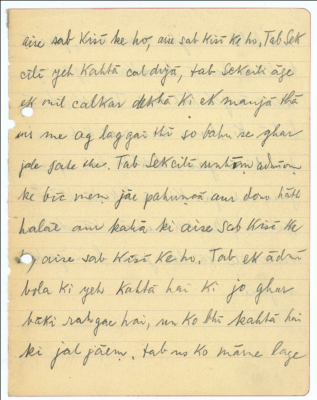 aise sab Kisī ke ho, aise sab Kisī Ke ho. Tab Sek
cilī yeh Kahtā cal diyā, tab Sekcili āge
ek mil calkar dekhā Ki ek manjā thā
us me ag lag gaī thī so bahu se ghar
jale jate the. Tab Sekcilī unhīm ādmiom
ke bīc mem jāe pahumcā aur dono hāth
halāe aur kahā ki aise sab Kisī Ke
ho aise sab Kisī Ke ho. Tab ek ādmī
bola ki yeh Kahtā hai Ki jo ghar
bāki rah gae hai, un Ko bhī kahtā hai
ki jal jāem. tab us Ko mārne lage